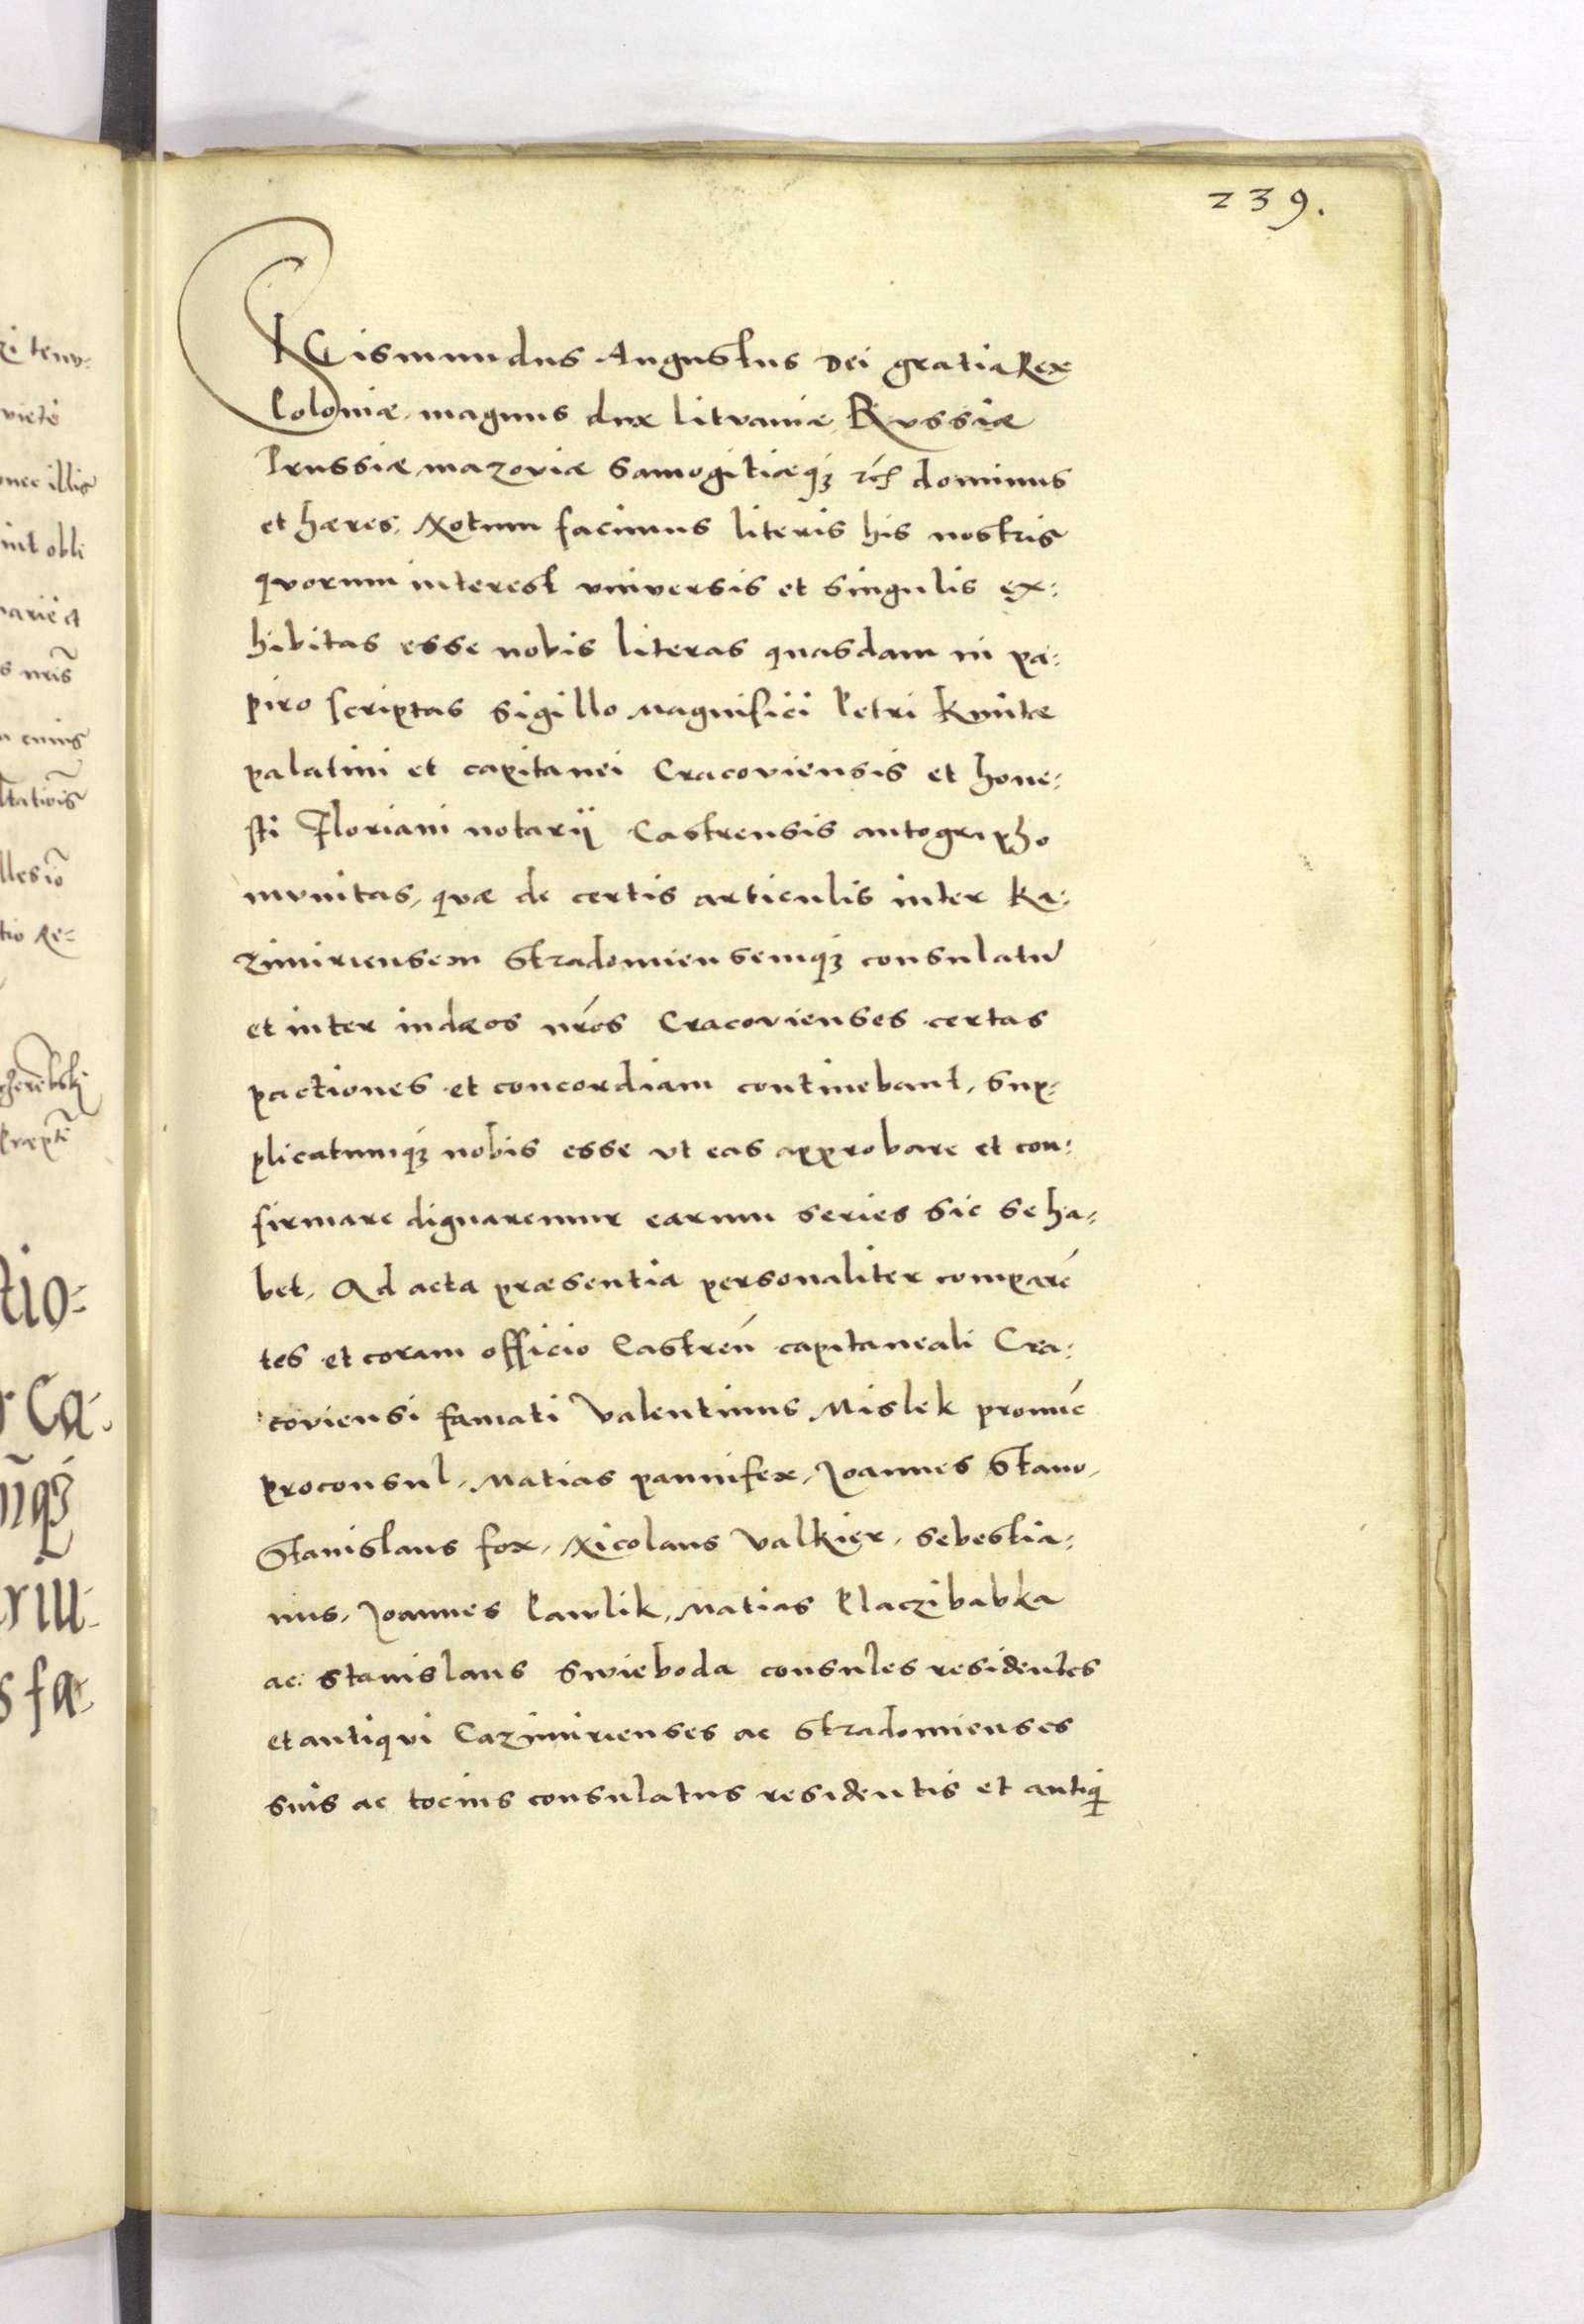 239.
SIGismundus Augustus Dei gratia Rex
Poloniæ, magnus dux Litvaniæ Rvssiæ
Prussiæ, mazoviæ Samogitiæq₃ etc̃ dominus
et hæres, Notum facimus literis his nostris
qvorum interest vniversis et singulis ex:
hibitas esse nobis literas quasdam in pa:
piro scriptas sigillo Magnifici Petri Kmitæ
palatini et capitanei Cracoviensis et hone:
sti Floriani notarij Castrensis autographo
mvnitas, qvæ de certis articulis inter Ka:
zimiriensem Stradomiensemq₃ consulatũ
et inter iudæos nr̃os Cracovienses certas
pactiones et concordiam continebant, sup-
plicatumq₃ nobis esse vt eas approbare et con:
firmare dignaremur earum series sic se ha-
bet, Ad acta præsentia personaliter comparẽ
tes et coram officio Castreñ capitaneali Cra:
coviensi famati Valentinus Mislek pronũc
proconsul, Matias pannifex, Joannes Stano,
Stanislaus fox, Nicolaus Valkier, Sebestia:
nus, Joannes Pawlik, Matias Placzibabka
ac Stanislaus Swieboda consules residentes
et antiqvi Cazimirienses ac Stradomienses
suis ac tocius consulatus residentis et antiqi
zi tenv-
vietẽ
onec illis
int obli
s nr̃is
cuius
tio Re-
tio-
r Ca-
riu-
s fa-